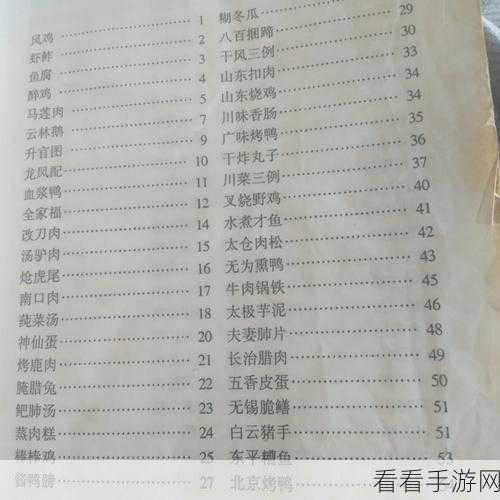 风鸡 1
虾鲊 2
鱼腐 3
醉鸡 4
马莲肉 5
云林鹅 7
升官图 9
龙凤配 10
血浆鸭 11
全家福 12
改刀肉 14
汤驴肉 15
炝虎尾 16
南口肉 17
莼菜汤 18
神仙蛋 20
烤鹿肉 21
腌腊兔 22
鲃肺汤 23
蒸肉糕 24
棒棒鸡 25
酱鸭膀 27
糊冬瓜 29
八百捆蹄 30
干风三例 33
山东扣肉 33
山东烧鸡 34
川味香肠 34
广味烤鸭 35
干炸丸子 36
川菜三例 37
叉烧野鸡 40
水煮才鱼 41
太仓肉松 42
无为熏鸭 43
牛肉锅铁 45
太极芋泥 46
夫妻肺片 48
长治腊肉 49
五香皮蛋 50
无锡脆鳝 51
白云猪手 51
东平糟鱼 53
北京烤鸭
看看手游网